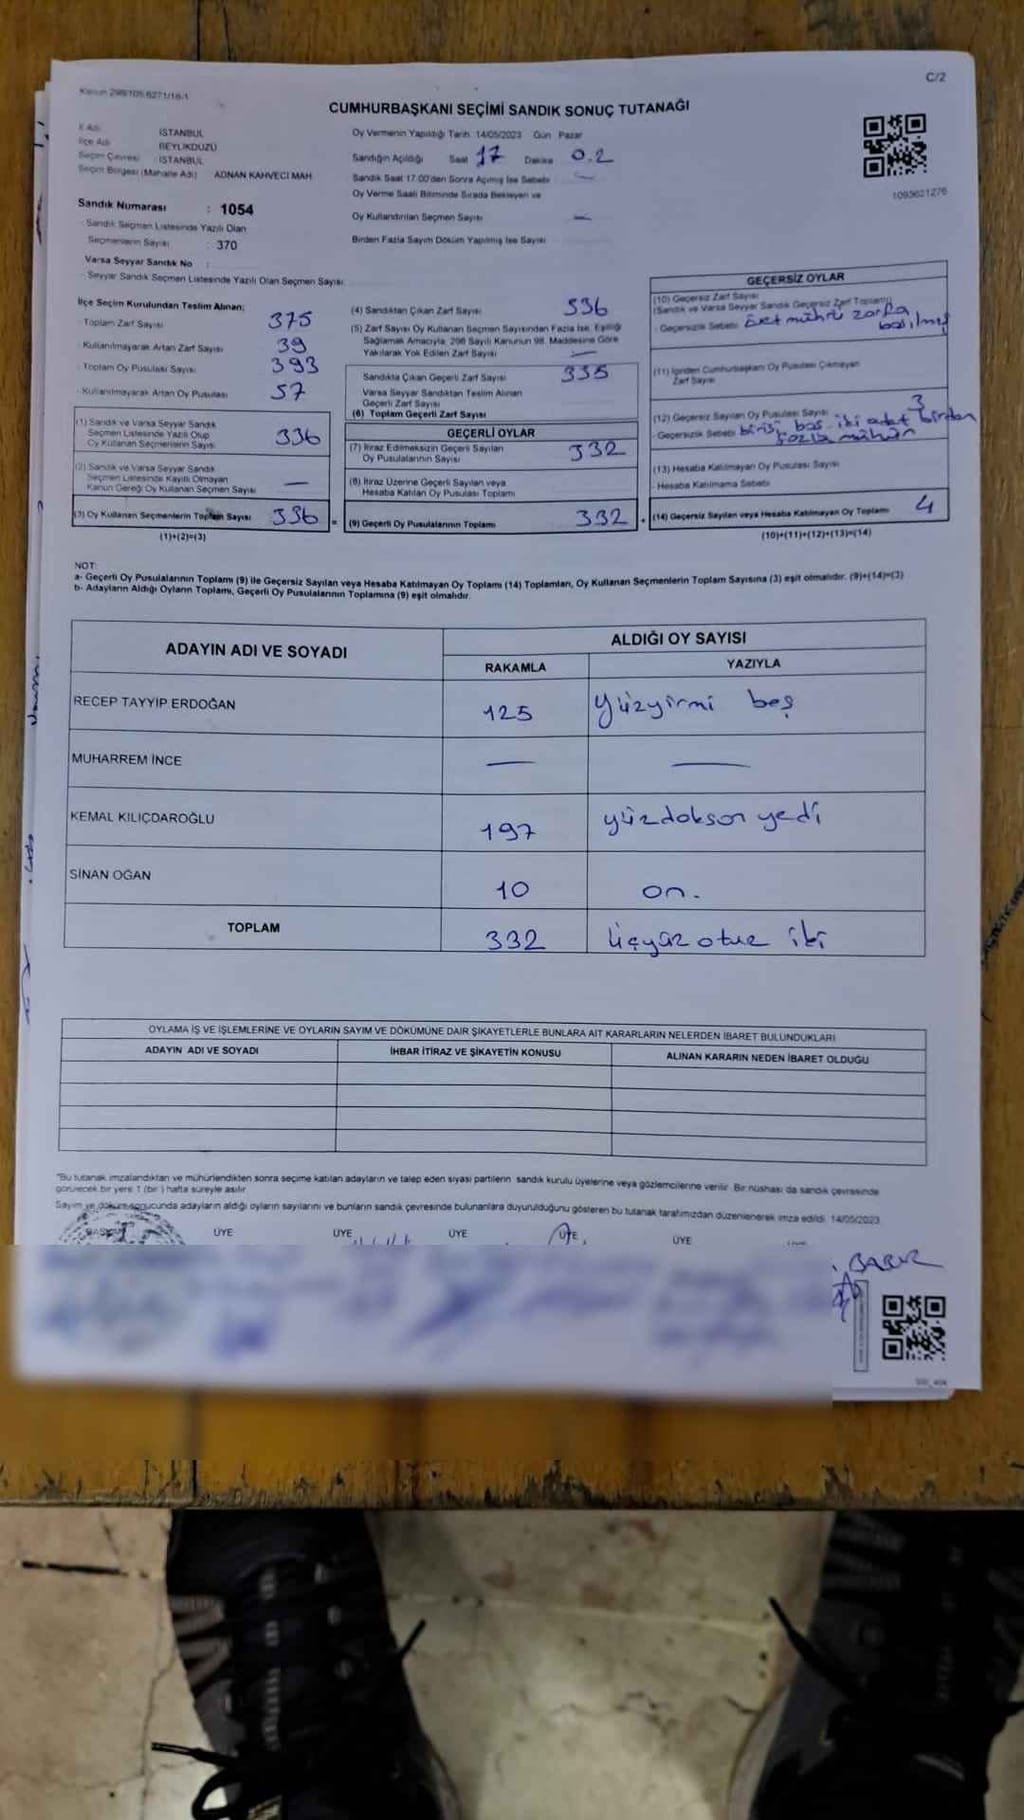 Kanun 298/105 6271/18/1
C/2
CUMHURBAŞKANI SEÇİMİ SANDIK SONUÇ TUTANAĞI
İl Adı İSTANBUL
İlçe Adı BEYLİKDÜZÜ
Seçim Çevresi : İSTANBUL
Seçim Bölgesi (Mahalle Adı) ADNAN KAHVECİ MAH
Sandık Numarası : 1054
- Sandık Seçmen Listesinde Yazılı Olan
Seçmenlerin Sayısı : 370
Varsa Seyyar Sandık No :
- Seyyar Sandık Seçmen Listesinde Yazılı Olan Seçmen Sayısı:
Oy Vermenin Yapıldığı Tarih 14/05/2023 Gün Pazar
Sandığın Açıldığı Saat 17 Dakika 0.2
Sandık Saat 17:00'den Sonra Açılmış İse Sebebi
Oy Verme Saati Bitiminde Sırada Bekleyen ve
Oy Kullandırılan Seçmen Sayısı —
Birden Fazla Sayım Döküm Yapılmış İse Sayısı
1093621276
İlçe Seçim Kurulundan Teslim Alınan;
- Toplam Zarf Sayısı 375
- Kullanılmayarak Artan Zarf Sayısı 39
- Toplam Oy Pusulası Sayısı 393
- Kullanılmayarak Artan Oy Pusulası 57
(1) Sandık ve Varsa Seyyar Sandık
Seçmen Listesinde Yazılı Olup
Oy Kullanan Seçmenlerin Sayısı 336
(2) Sandık ve Varsa Seyyar Sandık
Seçmen Listesinde Kayıtlı Olmayan
Kanun Gereği Oy Kullanan Seçmen Sayısı —
(3) Oy Kullanan Seçmenlerin Toplam Sayısı 336 =
(1)+(2)=(3)
(4) Sandıktan Çıkan Zarf Sayısı 336
(5) Zarf Sayısı Oy Kullanan Seçmen Sayısından Fazla İse, Eşitliği
Sağlamak Amacıyla, 298 Sayılı Kanunun 98. Maddesine Göre
Yakılarak Yok Edilen Zarf Sayısı —
Sandıkta Çıkan Geçerli Zarf Sayısı 335
Varsa Seyyar Sandıktan Teslim Alınan
Geçerli Zarf Sayısı
(6) Toplam Geçerli Zarf Sayısı
GEÇERLİ OYLAR
(7) İtiraz Edilmeksizin Geçerli Sayılan
Oy Pusulalarının Sayısı 332
(8) İtiraz Üzerine Geçerli Sayılan veya
Hesaba Katılan Oy Pusulası Toplamı
(9) Geçerli Oy Pusulalarının Toplamı 332 +
GEÇERSİZ OYLAR
(10) Geçersiz Zarf Sayısı
(Sandık ve Varsa Seyyar Sandık Geçersiz Zarf Toplamı)
- Geçersizlik Sebebi Evet mührü zarfa
basılmış
(11) İçinden Cumhurbaşkanı Oy Pusulası Çıkmayan
Zarf Sayısı
(12) Geçersiz Sayılan Oy Pusulası Sayısı 3
- Geçersizlik Sebebi birisi boş iki adet birden
fazla mühür
(13) Hesaba Katılmayan Oy Pusulası Sayısı
- Hesaba Katılmama Sebebi
(14) Geçersiz Sayılan veya Hesaba Katılmayan Oy Toplamı 4
(10)+(11)+(12)+(13)=(14)
NOT:
a- Geçerli Oy Pusulalarının Toplamı (9) ile Geçersiz Sayılan veya Hesaba Katılmayan Oy Toplamı (14) Toplamları, Oy Kullanan Seçmenlerin Toplam Sayısına (3) eşit olmalıdır. (9)+(14)=(3)
b- Adayların Aldığı Oyların Toplamı, Geçerli Oy Pusulalarının Toplamına (9) eşit olmalıdır.
ADAYIN ADI VE SOYADI ALDIĞI OY SAYISI
RAKAMLA YAZIYLA
RECEP TAYYİP ERDOĞAN 125 yüzyirmi beş
MUHARREM İNCE — —
KEMAL KILIÇDAROĞLU 197 yüzdoksan yedi
SİNAN OĞAN 10 on.
TOPLAM 332 üçyüz otuz iki
OYLAMA İŞ VE İŞLEMLERİNE VE OYLARIN SAYIM VE DÖKÜMÜNE DAİR ŞİKAYETLERLE BUNLARA AİT KARARLARIN NELERDEN İBARET BULUNDUKLARI
ADAYIN ADI VE SOYADI İHBAR İTİRAZ VE ŞİKAYETİN KONUSU ALINAN KARARIN NEDEN İBARET OLDUĞU
*Bu tutanak imzalandıktan ve mühürlendikten sonra seçime katılan adayların ve talep eden siyasi partilerin sandık kurulu üyelerine veya gözlemcilerine verilir. Bir nüshası da sandık çevresinde
görülecek bir yere 1 (bir) hafta süreyle asılır.
Sayım ve döküm sonucunda adayların aldığı oyların sayılarını ve bunların sandık çevresinde bulunanlara duyurulduğunu gösteren bu tutanak tarafımızdan düzenlenerek imza edildi. 14/05/2023
BAŞKAN ÜYE ÜYE ÜYE ÜYE ÜYE